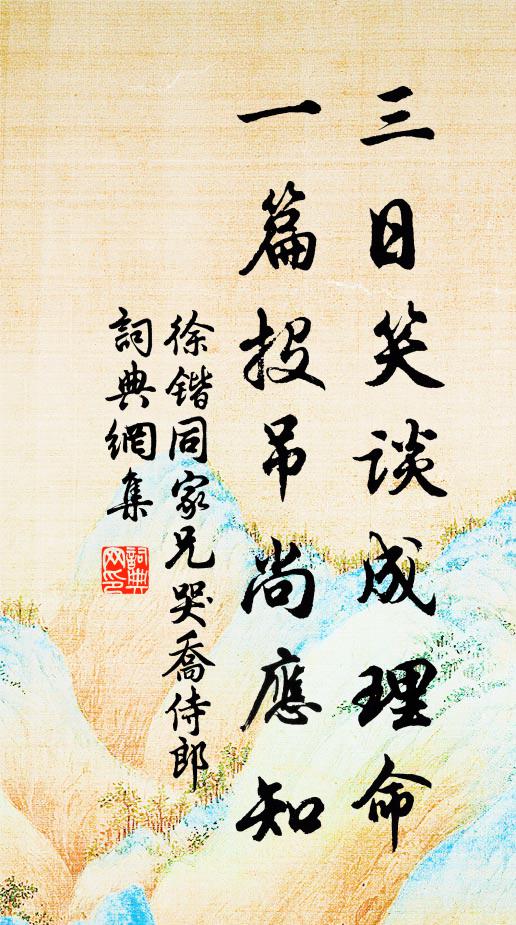 三日笑談成理命
一篇投吊尚應知
徐鍇同家兄哭喬侍郎
詞典網集
詞典
网印